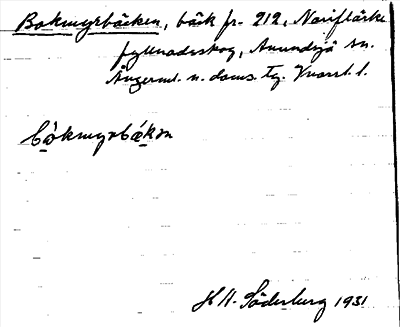 Bakmyrbäcken, bäck fr. 212, Norrflärke
fyllnadsskog, Anundsjö sn.
Ångerml. n. doms. Tg. Vnorrl. l.
bàkmyrbækɘn
H. H. Söderberg 1931